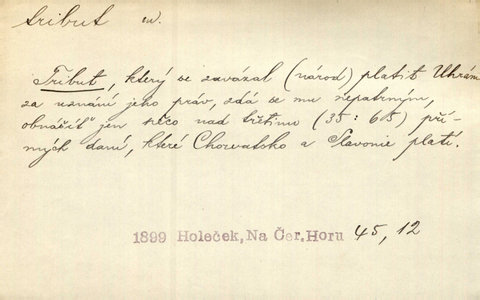 tribut m.
Tribut, který se zavázal (národ) platit Uhrám
za uznání jeho práv, zdá se mu nepatrným,
obnášíť jen něco nad třetinu (35 : 65) pří-
mých daní, které Chorvatsko a Slavonie platí.
1899 Holeček, Na Čer. Horu 45, 12